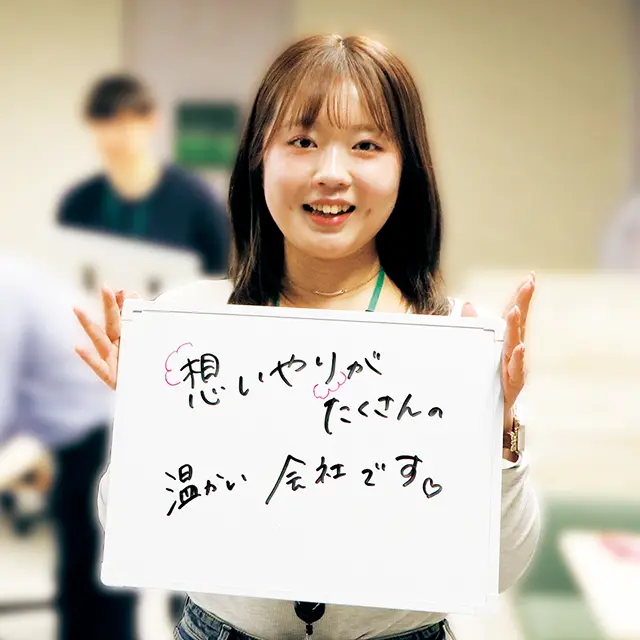 想いやりが
たくさんの
温かい会社です♡